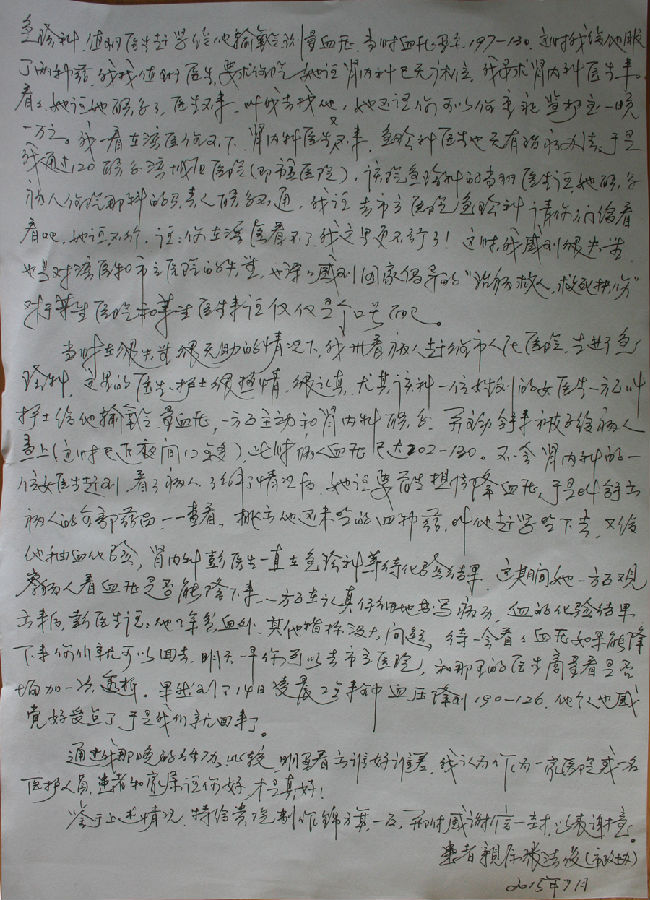 急诊科,值班医生赶紧给他输氧气量血压,当时血压显示197-130,这时我给他服
了两种药,我找值班医生要求住院,她说肾内科已无床位,我要求肾内科医生来
看看,她说她联系了,医生不来,叫我去找他,她还说你可以住重症监护室一晚
一万元。我一看在该医院住不下,肾内科医生又不来,急诊科医生也没有治病办法,于是
我通过120联系该城区医院(即市医院),该院急诊科的当班医生说她联系
病人住院那科的负责人联系不通,我说去市立医院急诊科请你们给看
看吧,她说不行,说:你在医看不了我这里更不行!这时我感到很失望,
也是对该医和市立医院的失望,也深感到国家倡导的"治病救人,救死扶伤"
对于某些医院和某些医生来说仅仅是个口号而已。
当时在很失望很无助的情况下,我们看病人赶给市人民医院,去进了急
诊科,这里的医生护士很热情,很认真,尤其该科一位女医生一方面叫
护士给他输氧气量血压,一方面主动和肾内科联系,并主动拿来被子给病人
盖上(这时已下夜间12点多),此时病人血压已达202-130。不一会肾内科的一
位女医生赶到,看了病人,了解了情况后,她说要首先想法降血压,于是叫拿出
病人的全部药品一一查看,挑出他还未吃的四种药,叫他赶紧吃下去,又给
他抽血化验,肾内科彭医生一直在急诊科等待化验结果,这期间她一方面观
察病人看血压是否能降下来,一方面在认真仔细地书写病历,血的化验结果
出来后彭医生说:他除贫血外,其他指标没大问题,待一会看看血压如果能降
下来你们就可以回去,明天一早你可以去市立医院,和那里的医生商量看是否
增加一次透析。果然到了14日凌晨2点来钟血压降到190-126,他个人也感
觉好受点了于是我们就回来了。
通过我那晚的行动、比较,明显看出谁好谁差,我认为作为一家医院或一名
医护人员,患者和家属说你好,才是真好!
鉴于上述情况,特给贵院制作锦旗一面,并附感谢信一封,以表谢意。
患者亲属
2015年7月